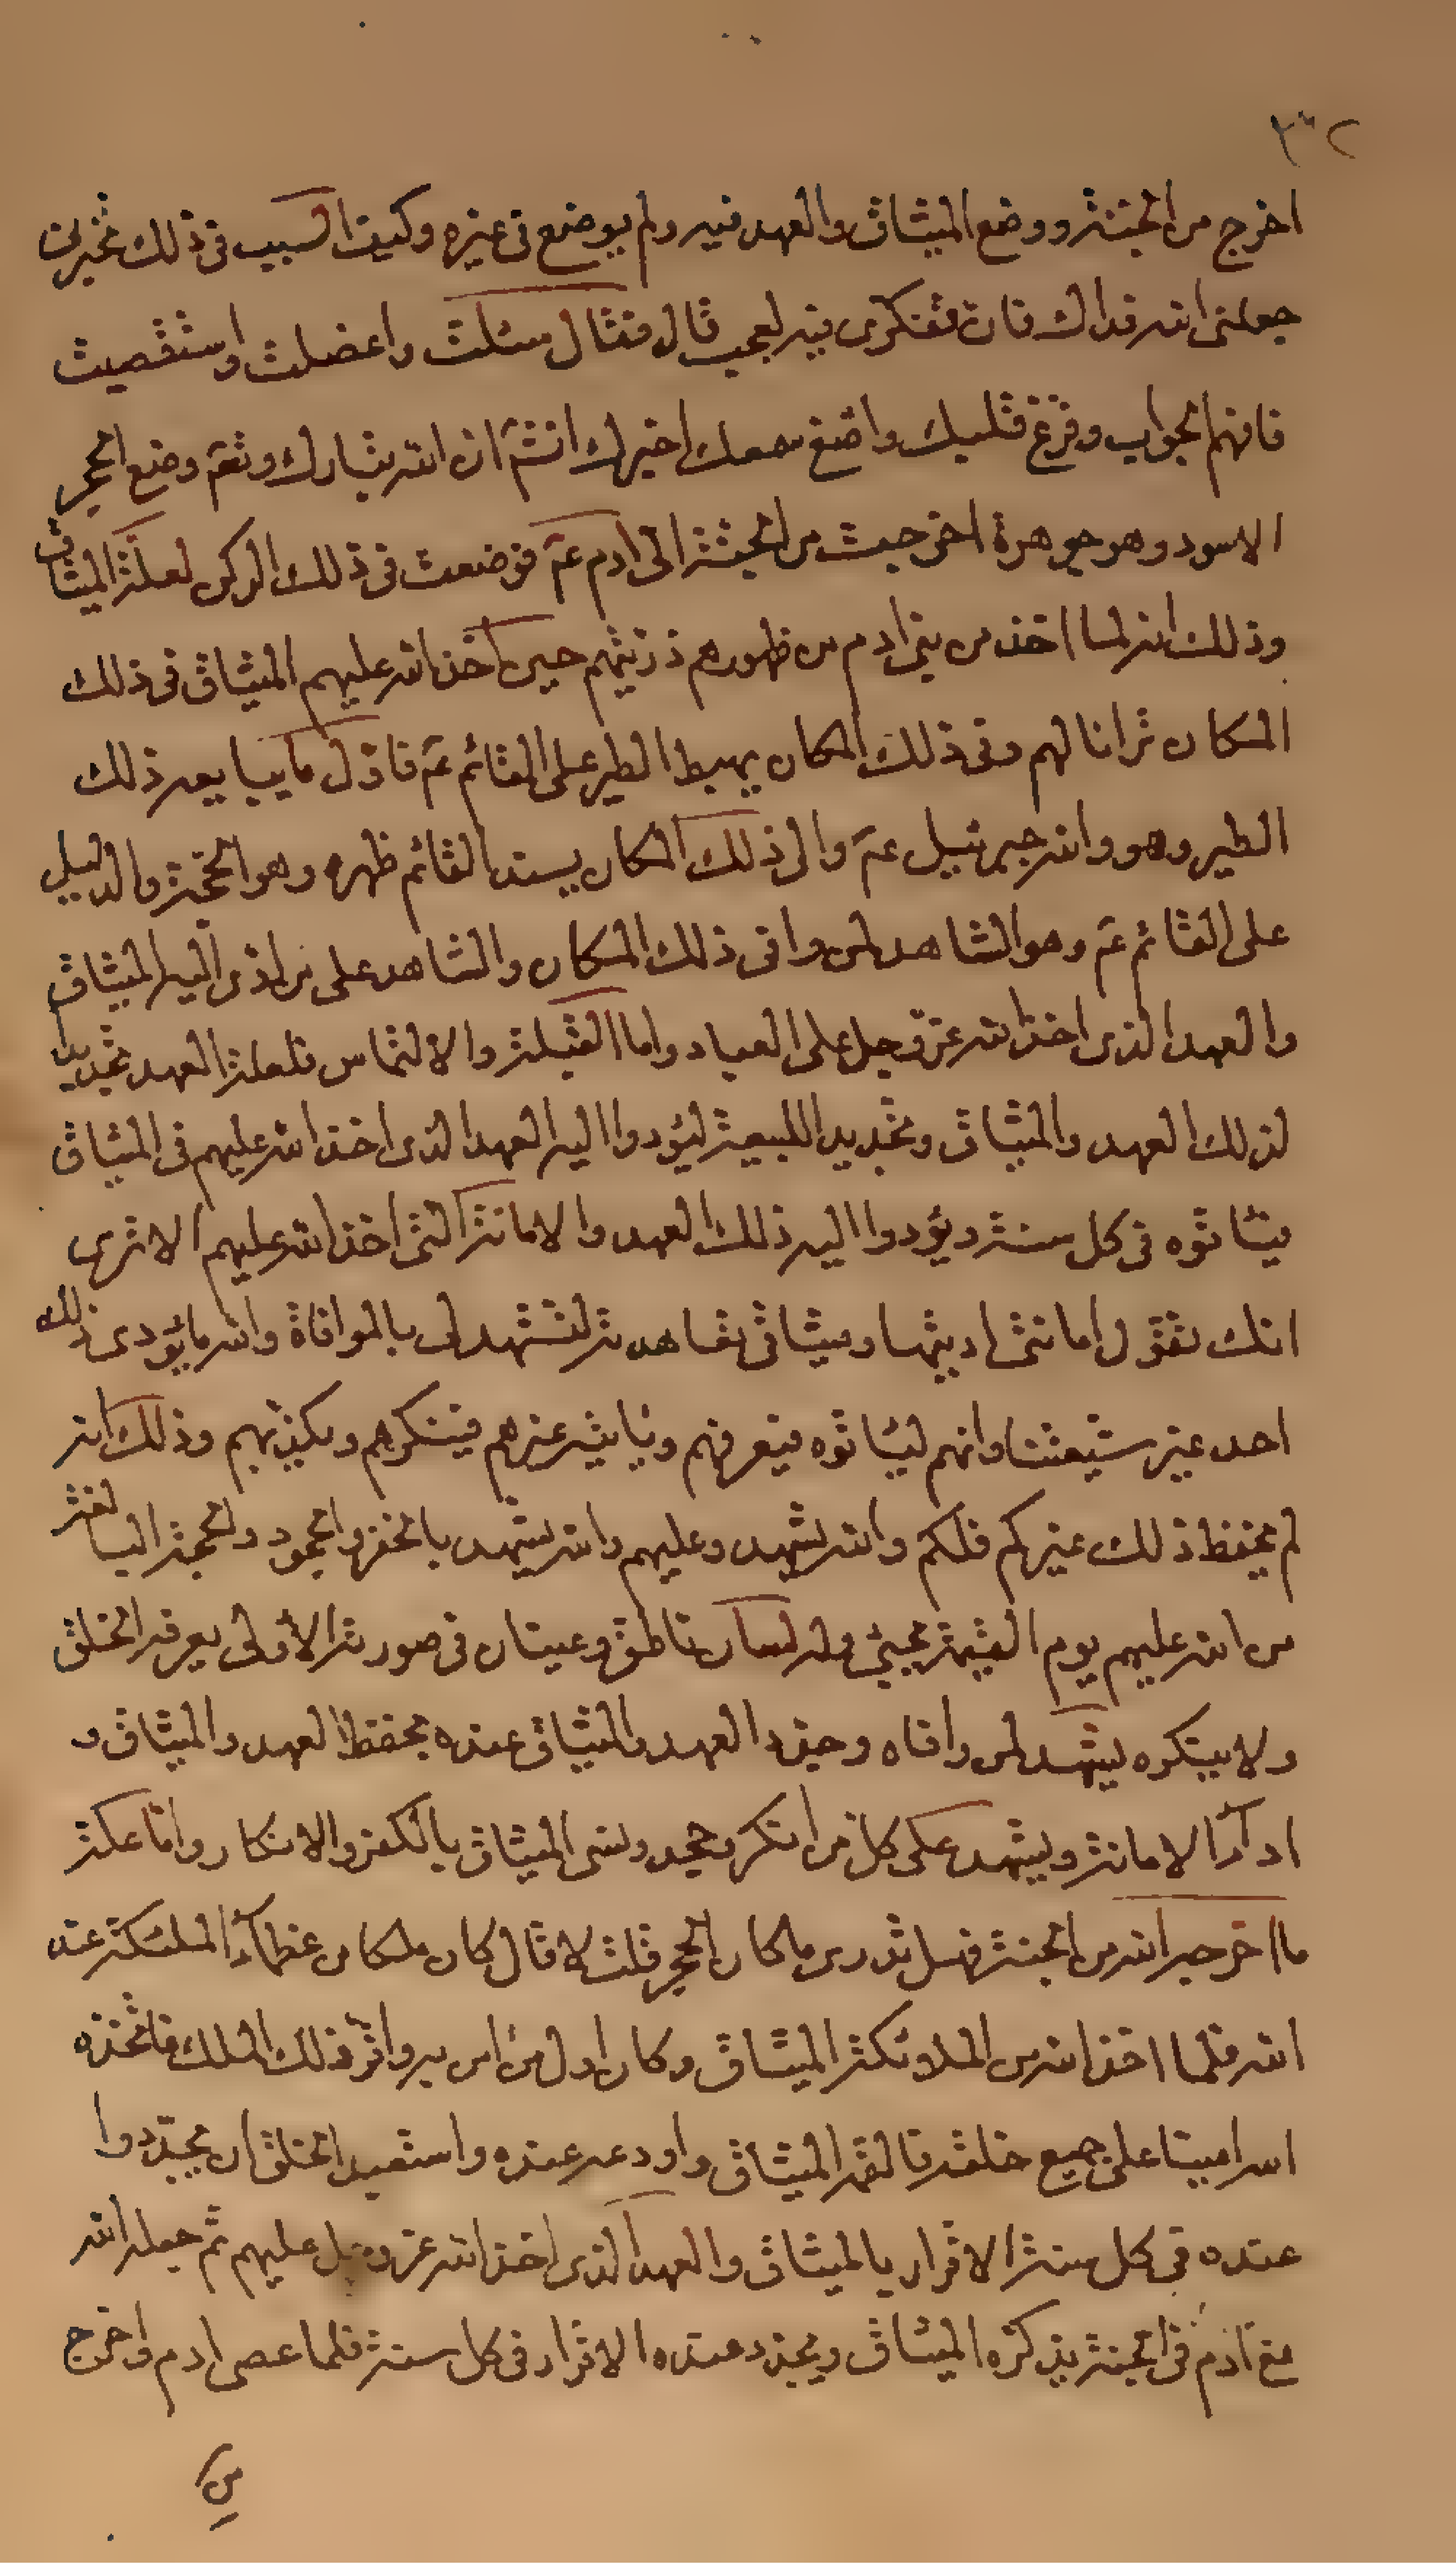 ٢٣٢
اخرج من الجنة ووضع الميثاق والعهد فيه ولم يوضع فى غيره وكيف السبب فى ذلك تخبرنى
جعلنى الله فداك فان تفكرى فيه لعجب قال فقال سئلت واعضلت واستقصيت
فافهم الجواب وفرغ قلبك واصغ سمعك اخبرك انشم ان الله تبارك وتعم وضع الحجر
الاسود وهو جوهرة اخرجت من الجنة الى ادم عم فوضعت فى ذلك الركن لعلة الميثاق
وذلك انه لما اخذ من بنى ادم من ظهورهم ذريتهم حين اخذ الله عليهم الميثاق فى ذلك
المكان تراءا لهم وفى ذلك المكان يهبط الطير على القائم عم فاول ما يبايعه ذلك
الطير وهو والله جبرئيل عم والى ذلك المكان يسند القائم ظهره وهو الحجة والدليل
على القائم عم وهو الشاهد لمن وافى ذلك المكان والشاهد على من ادى اليه الميثاق
والعهد الذى اخذ الله عز وجل على العباد واما القبلة والالتماس فلعلة العهد تجديدا
لذلك العهد والميثاق وتجديدا للبيعة ليؤدوا اليه العهد الذى اخذ الله عليهم فى الميثاق
فيأتوه فى كل سنة ويؤدوا اليه ذلك العهد والامانة التى اخذ الله عليهم الا ترى
انك تقول امانتى اديتها وميثاقى تعاهدته لتشهد لى بالموافاة والله ما يؤدى ذلك
احد غير شيعتنا وانهم ليأتوه فيعرفهم ويأتيه غيرهم فينكرهم ويكذبهم وذلك انه
لم يحفظ ذلك غيركم فلكم والله يشهد وعليهم والله يشهد بالخفر والجحود والحجة البالغة
من الله عليهم يوم القيمة يجيئ وله لسان ناطق وعينان فى صورته الاولى يعرفه الخلق
ولا ينكره يشهد لمن وافاه وجدد العهد والميثاق عنده بحفظ العهد والميثاق و
ادآء الامانة ويشهد على كل من انكر وجحد ونسى الميثاق بالكفر والانكار واما علة
ما اخرجه الله من الجنة فهل تدرى ما كان الحجر قلت لا قال كان ملكا من عظمآء الملئكة عند
الله فلما اخذ الله من الملائكة الميثاق وكان اول من امن به واقر ذلك الملك فاتخذه
الله امينا على جميع خلقه فالقمه الميثاق واودعه عنده واستعبد الخلق ان يجددوا
عنده فى كل سنة الاقرار بالميثاق والعهد الذى اخذ الله عز وجل عليهم ثم جعله الله
مع آدم فى الجنة يذكره الميثاق ويجدد عنده الاقرار فى كل سنة فلما عصى ادم واخرج
من